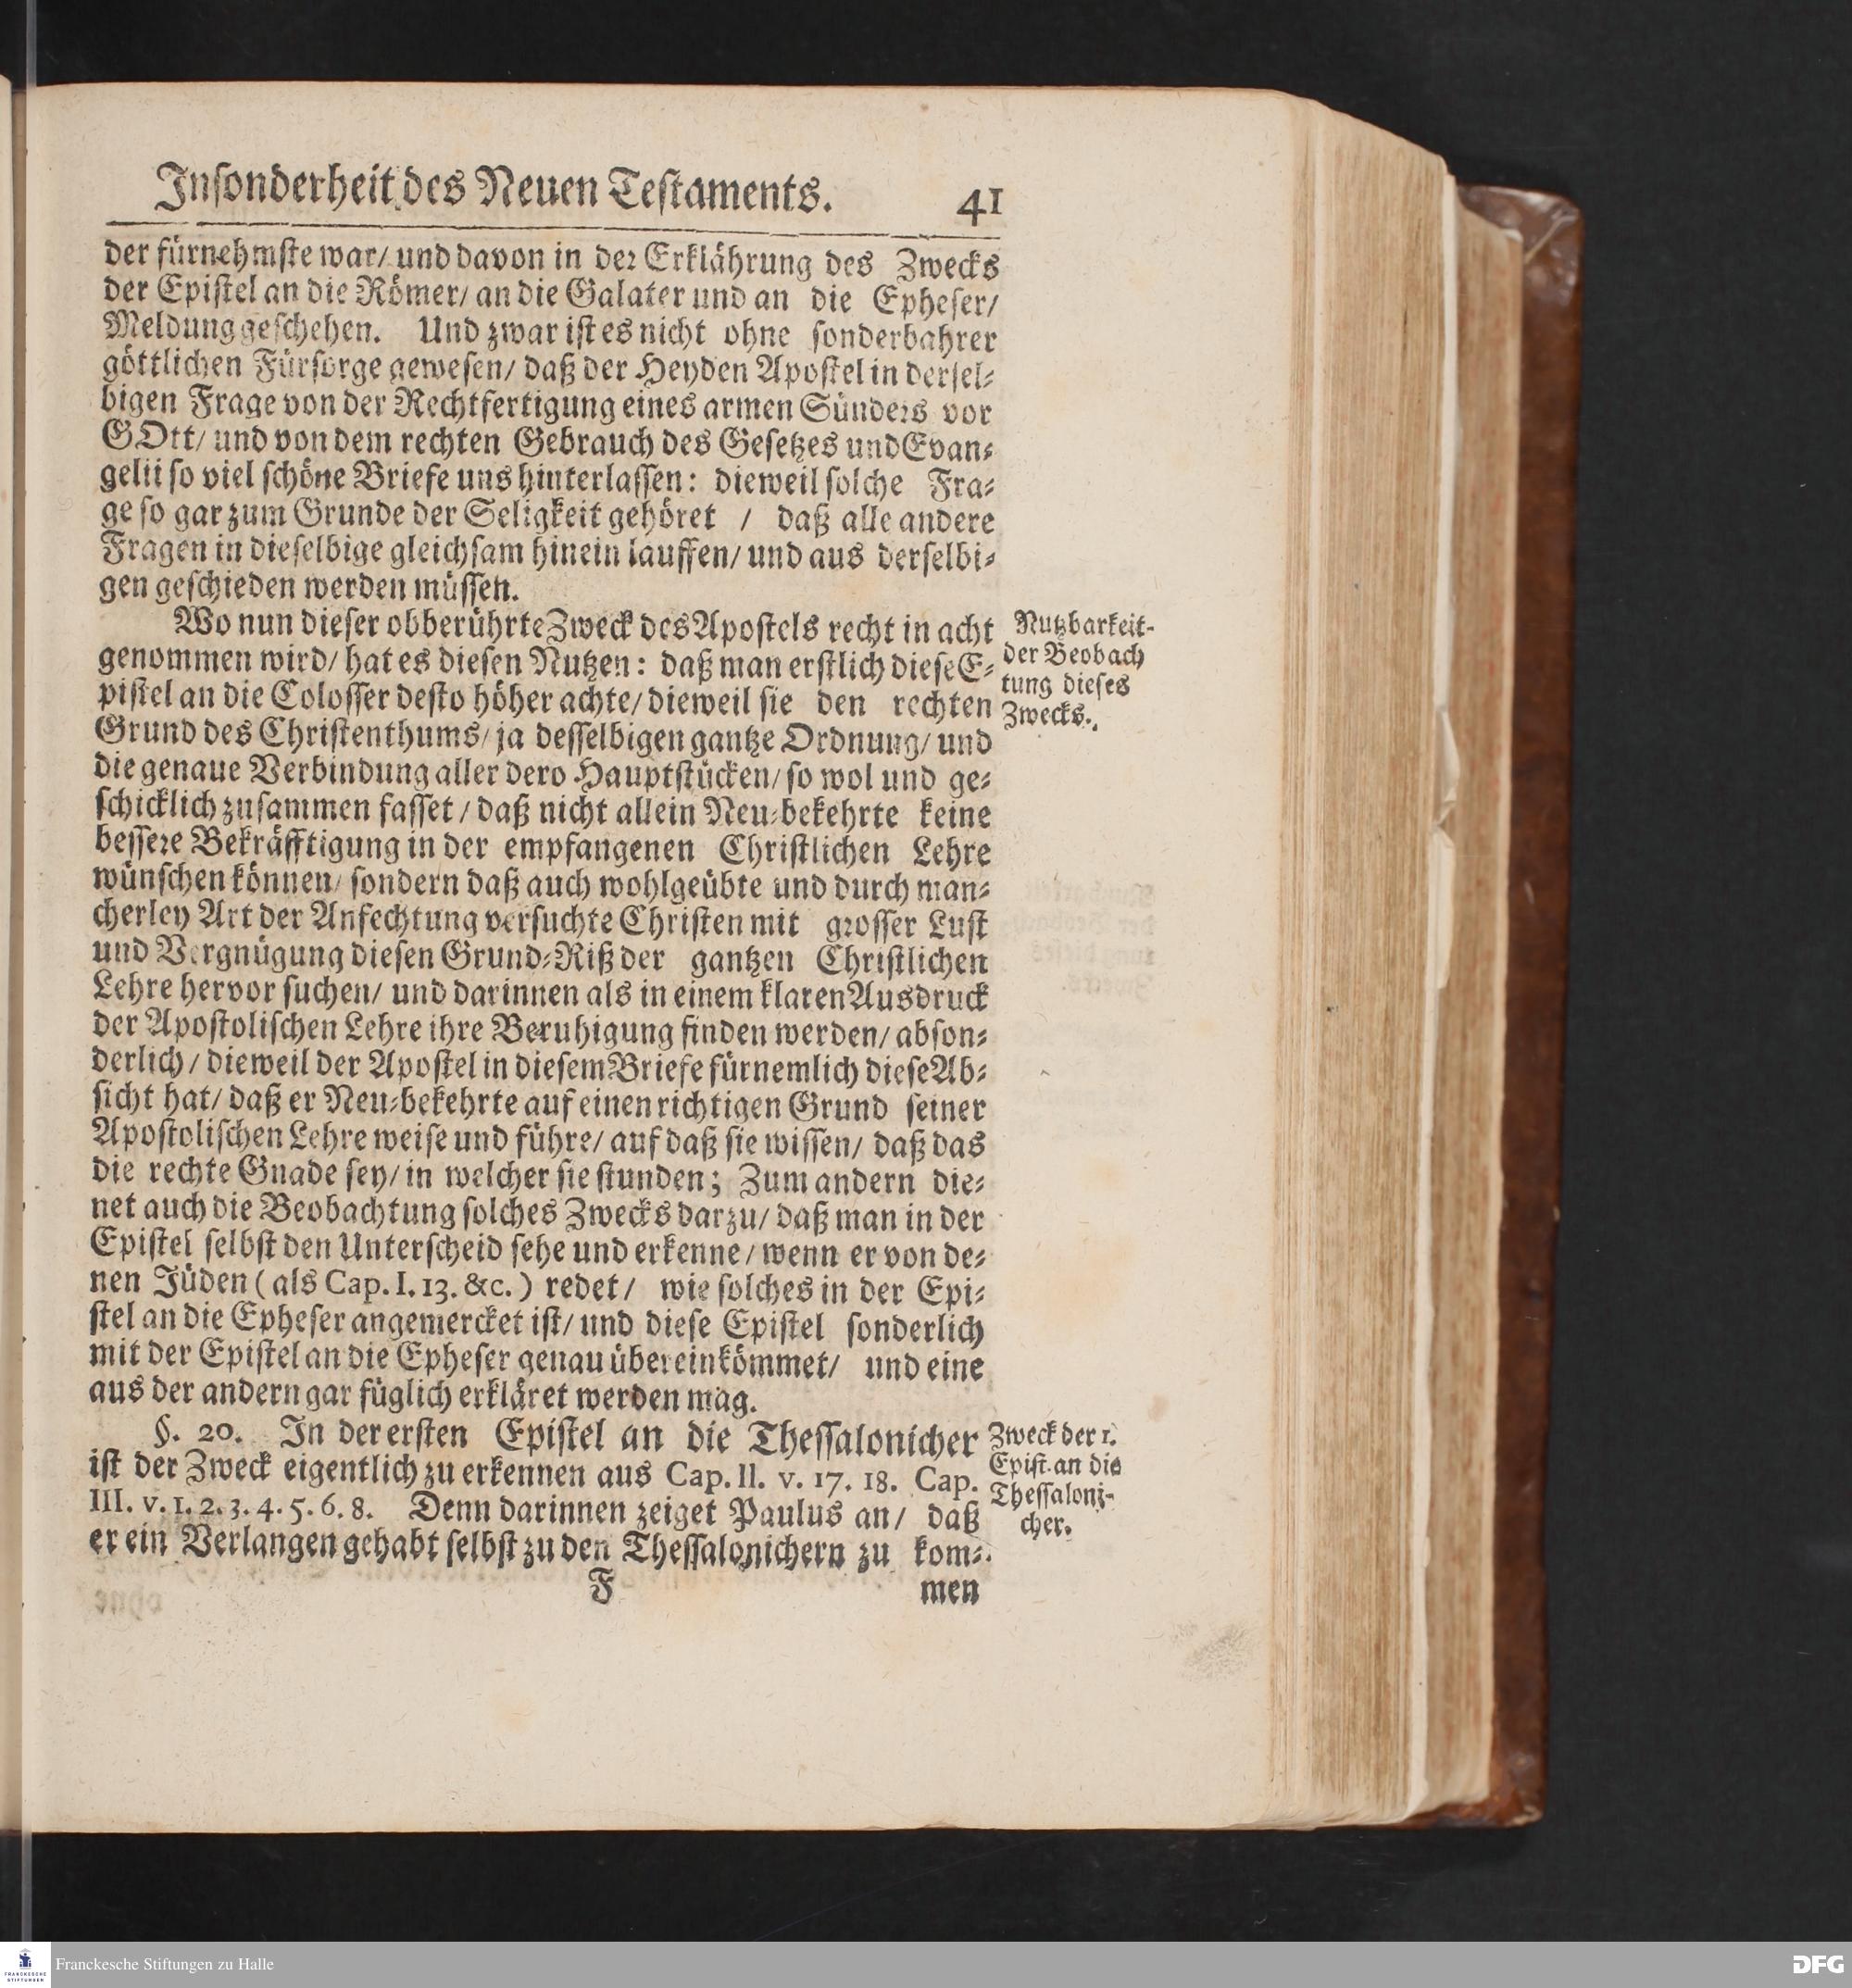 Insonderheit des Neuen Testaments. 41
der fürnehmste war/ und davon in der Erklährung des Zwecks
der Epistel an die Römer/ an die Galater und an die Epheser/
Meldung geschehen. Und zwar ist es nicht ohne sonderbahrer
göttlichen Fürsorge gewesen/ daß der Heyden Apostel in dersel-
bigen Frage von der Rechtfertigung eines armen Sünders vor
GOtt/ und von dem rechten Gebrauch des Gesetzes und Evan-
gelii so viel schöne Briefe uns hinterlassen: dieweil solche Fra-
ge so gar zum Grunde der Seligkeit gehöret / daß alle andere
Fragen in dieselbige gleichsam hinein lauffen/ und aus derselbi-
gen geschieden werden müssen.
Wo nun dieser obberührte Zweck des Apostels recht in acht
genommen wird/ hat es diesen Nutzen: daß man erstlich diese E-
pistel an die Colosser desto höher achte/ dieweil sie den rechten
Grund des Christenthums/ ja desselbigen gantze Ordnung/ und
die genaue Verbindung aller dero Hauptstücken/ so wol und ge-
schicklich zusammen fasset / daß nicht allein Neu-bekehrte keine
bessere Bekräfftigung in der empfangenen Christlichen Lehre
wünschen können/ sondern daß auch wohlgeübte und durch man-
cherley Art der Anfechtung versuchte Christen mit grosser Lust
und Vergnügung diesen Grund-Riß der gantzen Christlichen
Lehre hervor suchen/ und darinnen als in einem klaren Ausdruck
der Apostolischen Lehre ihre Beruhigung finden werden/ abson-
derlich/ dieweil der Apostel in diesem Briefe fürnemlich diese Ab-
sicht hat/ daß er Neu-bekehrte auf einen richtigen Grund seiner
Apostolischen Lehre weise und führe/ auf daß sie wissen/ daß das
die rechte Gnade sey/ in welcher sie stunden; Zum andern die-
net auch die Beobachtung solches Zwecks darzu/ daß man in der
Epistel selbst den Unterscheid sehe und erkenne/ wenn er von de-
nen Jüden (als Cap. I. 13. &c.) redet/ wie solches in der Epi-
stel an die Epheser angemercket ist/ und diese Epistel sonderlich
mit der Epistel an die Epheser genau übereinkömmet/ und eine
aus der andern gar füglich erkläret werden mag.
§. 20. In der ersten Epistel an die Thessalonicher
ist der Zweck eigentlich zu erkennen aus Cap. II. v. 17. 18. Cap.
III. v. 1. 2. 3. 4. 5. 6. 8. Denn darinnen zeiget Paulus an/ daß
er ein Verlangen gehabt selbst zu den Thessalonichern zu kom-
F men
Nutzbarkeit
der Beobach
tung dieses
Zwecks.
Zweck der 1.
Epist. an die
Thessaloni-
cher.
FRANCKESCHE STIFTUNGEN
Franckesche Stiftungen zu Halle
DFG